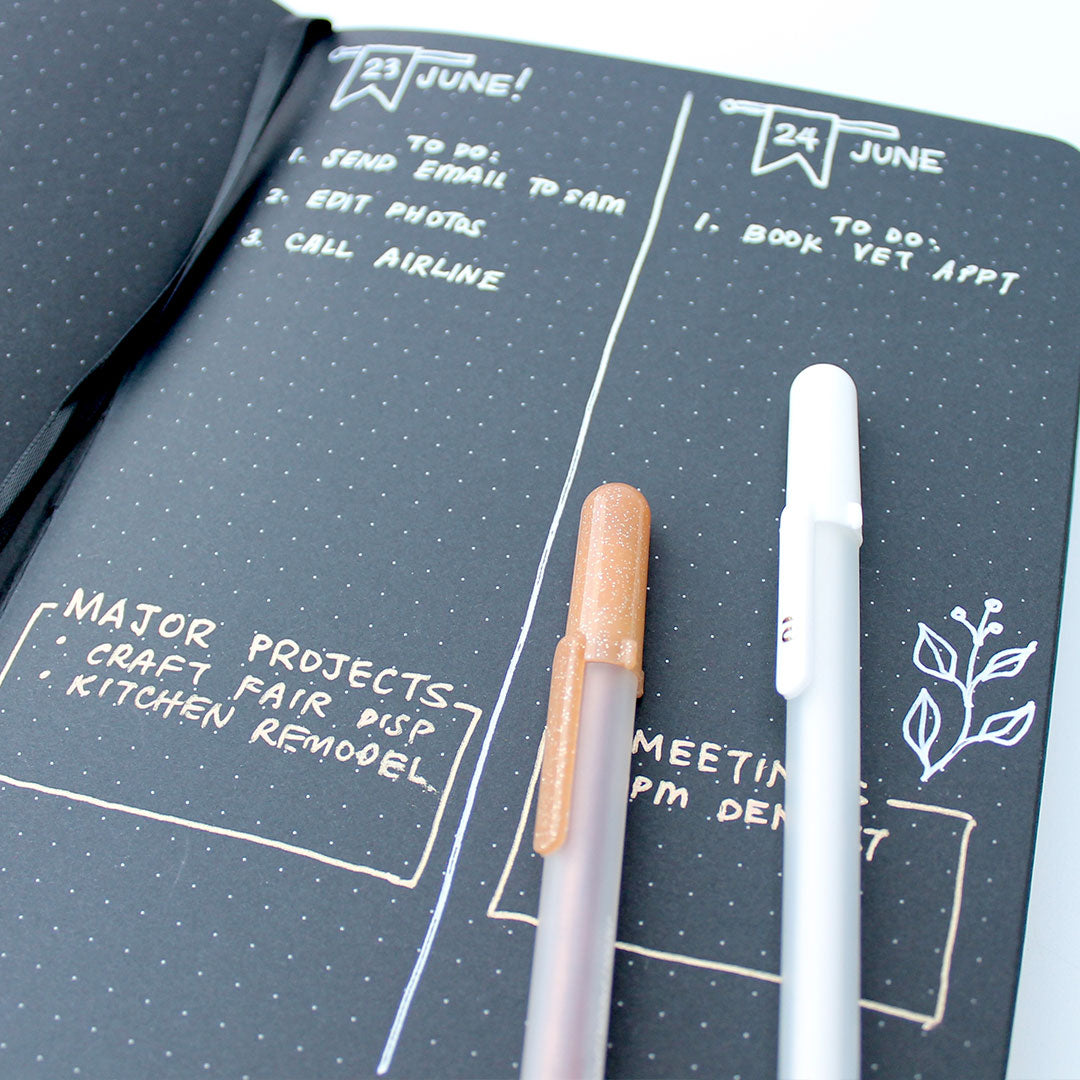 23 JUNE!
TO DO:
1. SEND EMAIL TO SAM
2. EDIT PHOTOS
3. CALL AIRLINE
MAJOR PROJECTS
• CRAFT FAIR DISP
• KITCHEN REMODEL
24 JUNE
TO DO:
1. BOOK VET APPT
PM